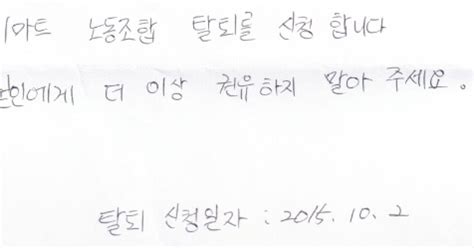 이마트 노동조합 탈퇴를 신청 합니다
본인에게 더 이상 권유하지 말아 주세요.
탈퇴 신청일자 : 2015. 10. 2